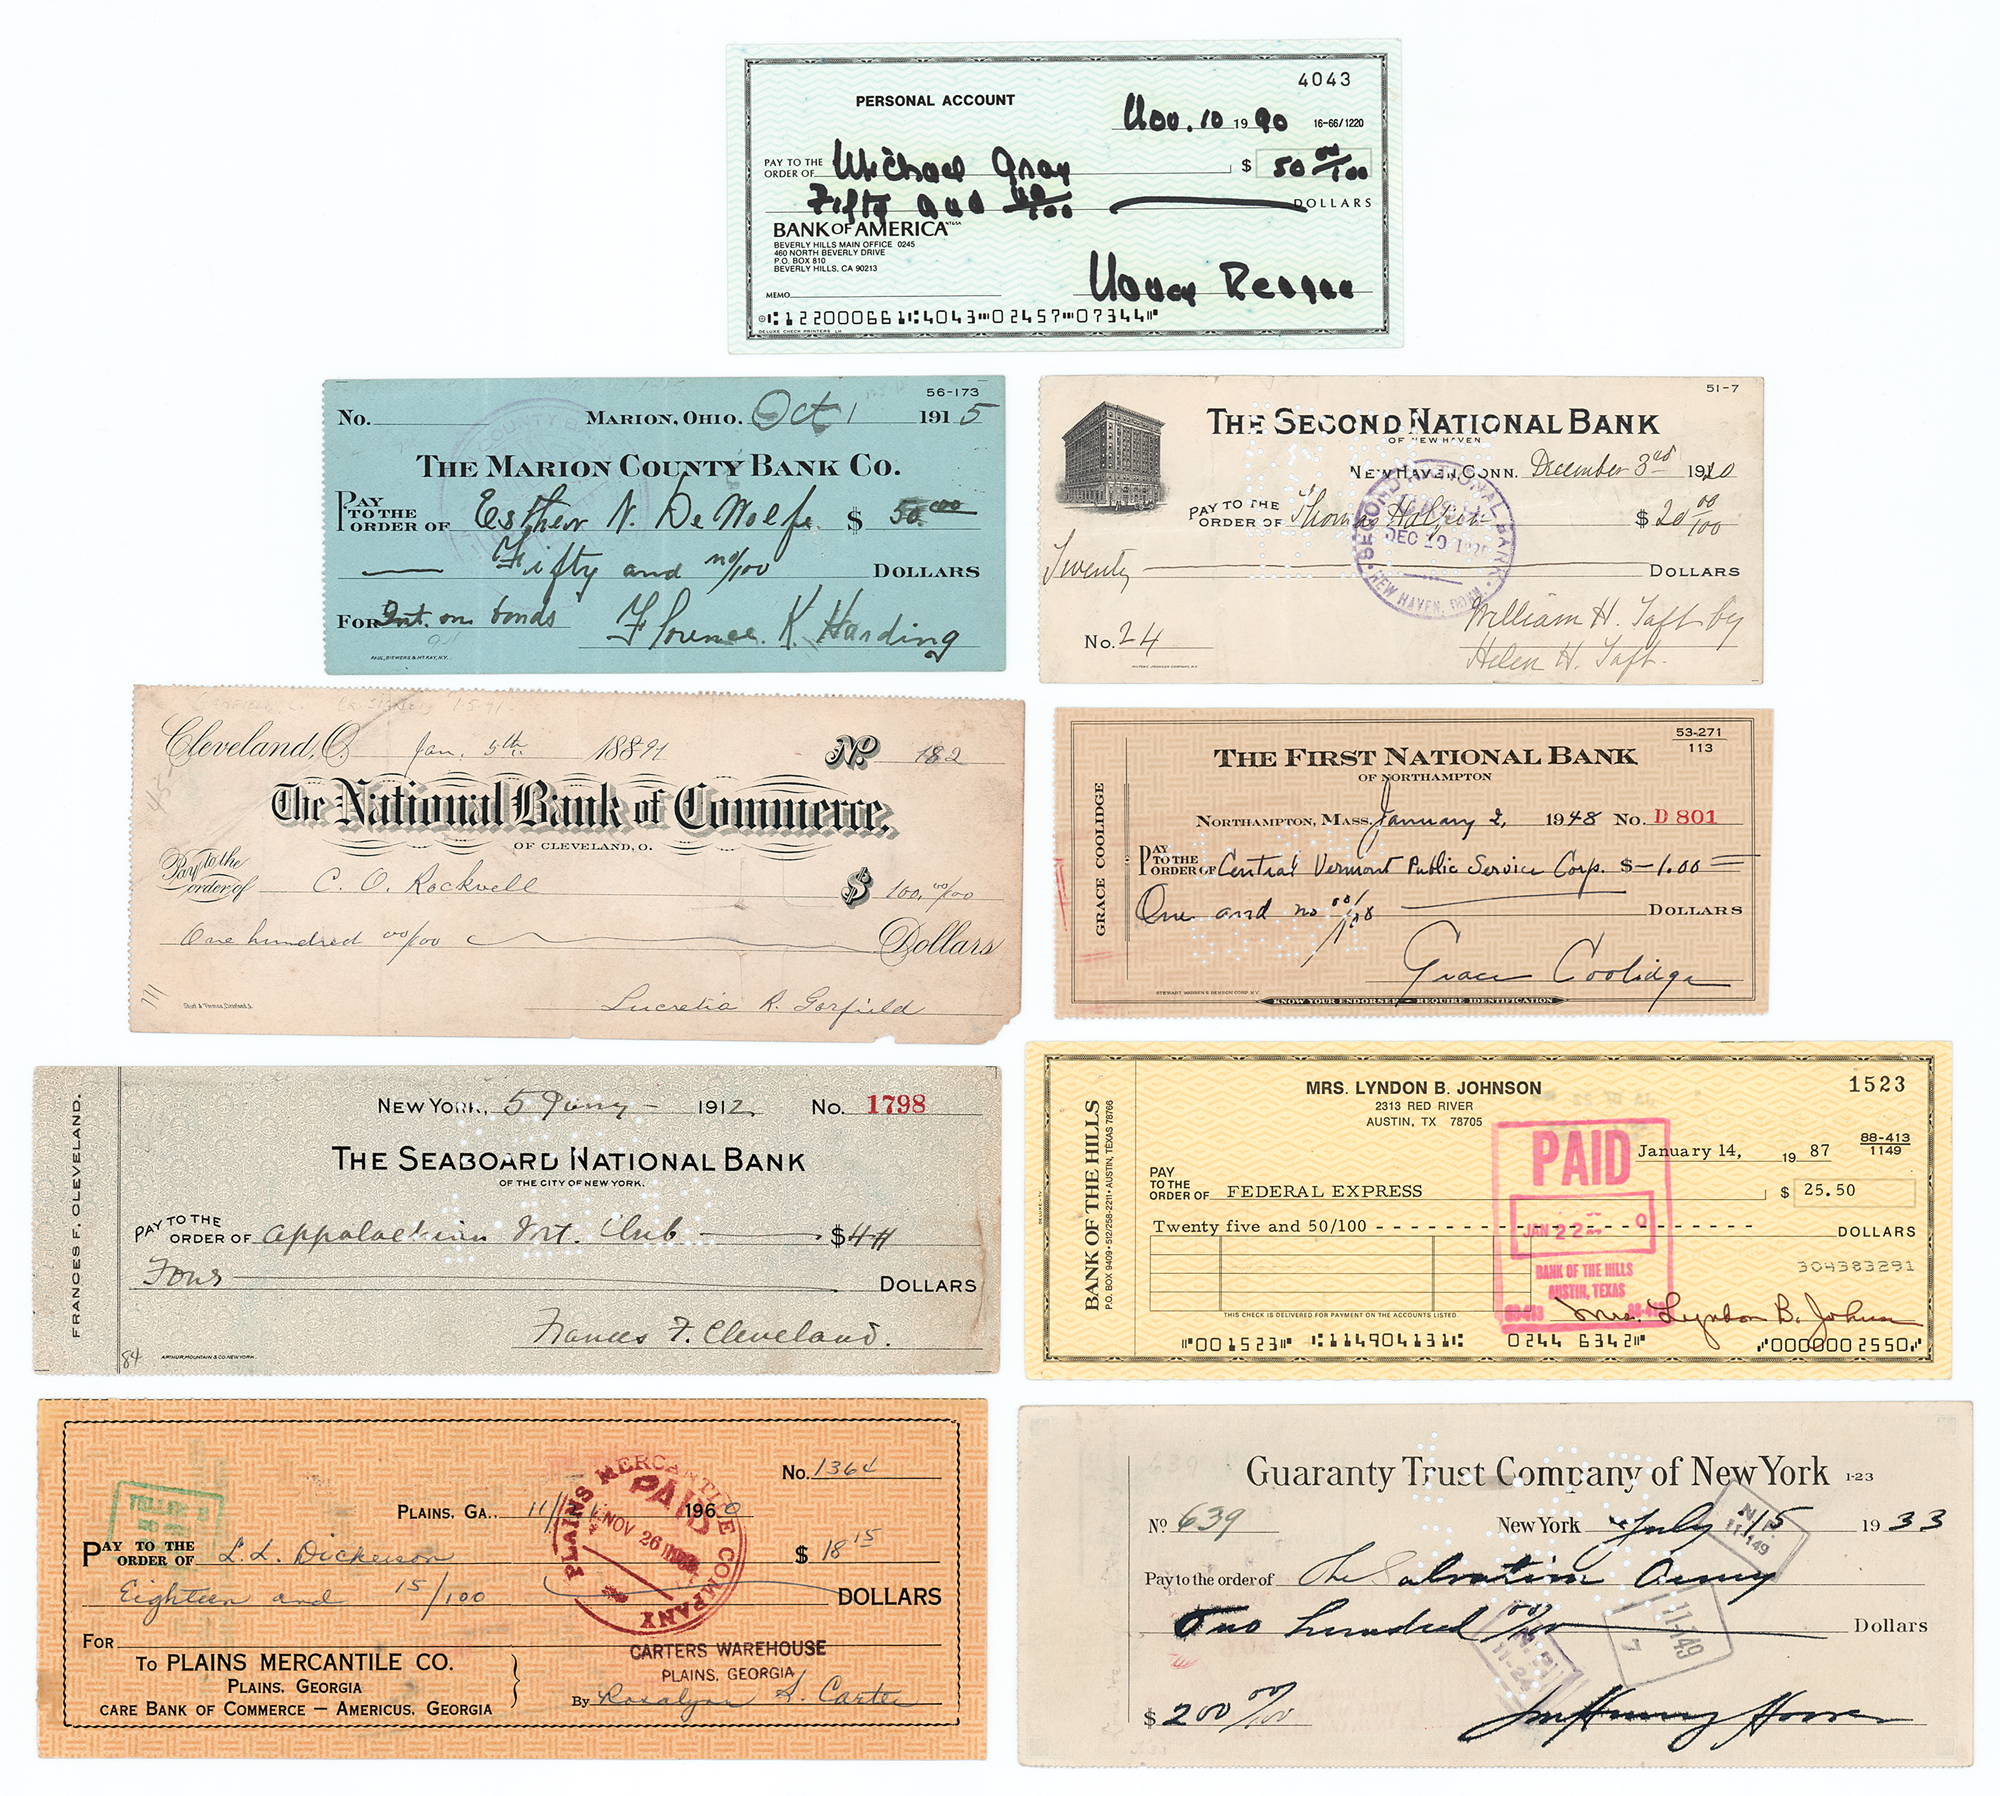 4043
PERSONAL ACCOUNT
Nov. 10 19 90 16-66/1220
PAY TO THE ORDER OF Michael Gray $ 50 00/100
Fifty and 00/100 DOLLARS
BANK OF AMERICA NT&SA
BEVERLY HILLS MAIN OFFICE 0245
460 NORTH BEVERLY DRIVE
P.O. BOX 810
BEVERLY HILLS, CA 90213
Nancy Reagan
MEMO
122000661 4043 02457 07344
DELUXE CHECK PRINTERS LH
56-173
No. MARION, OHIO. Oct 1 1915
THE MARION COUNTY BANK CO.
PAY TO THE ORDER OF Esther N. DeWolfe $ 50.00
Fifty and no/100 DOLLARS
FOR Int. on bonds Florence K. Harding
51-7
THE SECOND NATIONAL BANK
OF NEW HAVEN
NEW HAVEN, CONN. December 3rd 1920
PAY TO THE ORDER OF Thomas Halpin $ 20 00/100
SECOND NATIONAL BANK
DEC 10 1920
NEW HAVEN, CONN.
Twenty DOLLARS
William H. Taft by
No. 24 Helen H. Taft.
Cleveland, O. Jan. 5th 1891 No 182
The National Bank of Commerce,
OF CLEVELAND, O.
Pay to the order of C. O. Rockwell $ 100. 00/00
One hundred 00/00 Dollars
Lucretia R. Garfield
53-271
113
THE FIRST NATIONAL BANK
OF NORTHAMPTON
GRACE COOLIDGE
NORTHAMPTON, MASS. January 2, 1948 No. D 801
PAY TO THE ORDER OF Central Vermont Public Service Corp. $ 1.00
One and no 00/100 DOLLARS
Grace Coolidge
STEWART WARREN & BENSON CORP. N.Y.
KNOW YOUR ENDORSER — REQUIRE IDENTIFICATION
FRANCES F. CLEVELAND.
NEW YORK, 5 Jany 1912 No. 1798
THE SEABOARD NATIONAL BANK
OF THE CITY OF NEW YORK.
PAY TO THE ORDER OF Appalachian Mt. Club $ 4
Four DOLLARS
Frances F. Cleveland.
84
ARTHUR, MOUNTAIN & CO. NEW YORK.
BANK OF THE HILLS
P.O. BOX 9409 • 512/258-2211 • AUSTIN, TEXAS 78766
MRS. LYNDON B. JOHNSON 1523
2313 RED RIVER
AUSTIN, TX 78705
January 14, 19 87 88-413
1149
PAY TO THE ORDER OF FEDERAL EXPRESS $ 25.50
Twenty five and 50/100 DOLLARS
PAID
JAN 22
BANK OF THE HILLS
AUSTIN, TEXAS
304383291
THIS CHECK IS DELIVERED FOR PAYMENT ON THE ACCOUNTS LISTED.
Mrs. Lyndon B. Johnson
001523 114904131 0244 6342 0000002550
No. 1364
PLAINS, GA., 11/ 1960
PAY TO THE ORDER OF L. L. Dickerson $ 18 15
Eighteen and 15/100 DOLLARS
PLAINS MERCANTILE COMPANY
PAID
NOV 26
FOR
CARTERS WAREHOUSE
To PLAINS MERCANTILE CO.
PLAINS, GEORGIA
PLAINS, GEORGIA
CARE BANK OF COMMERCE — AMERICUS, GEORGIA
By Rosalynn S. Carter
639
Guaranty Trust Company of New York 1-23
No 639 New York July 15 1933
Pay to the order of The Salvation Army
Two hundred 00/100 Dollars
N.P.
11-149
11-149
7
$ 200 00/100 Lou Henry Hoover